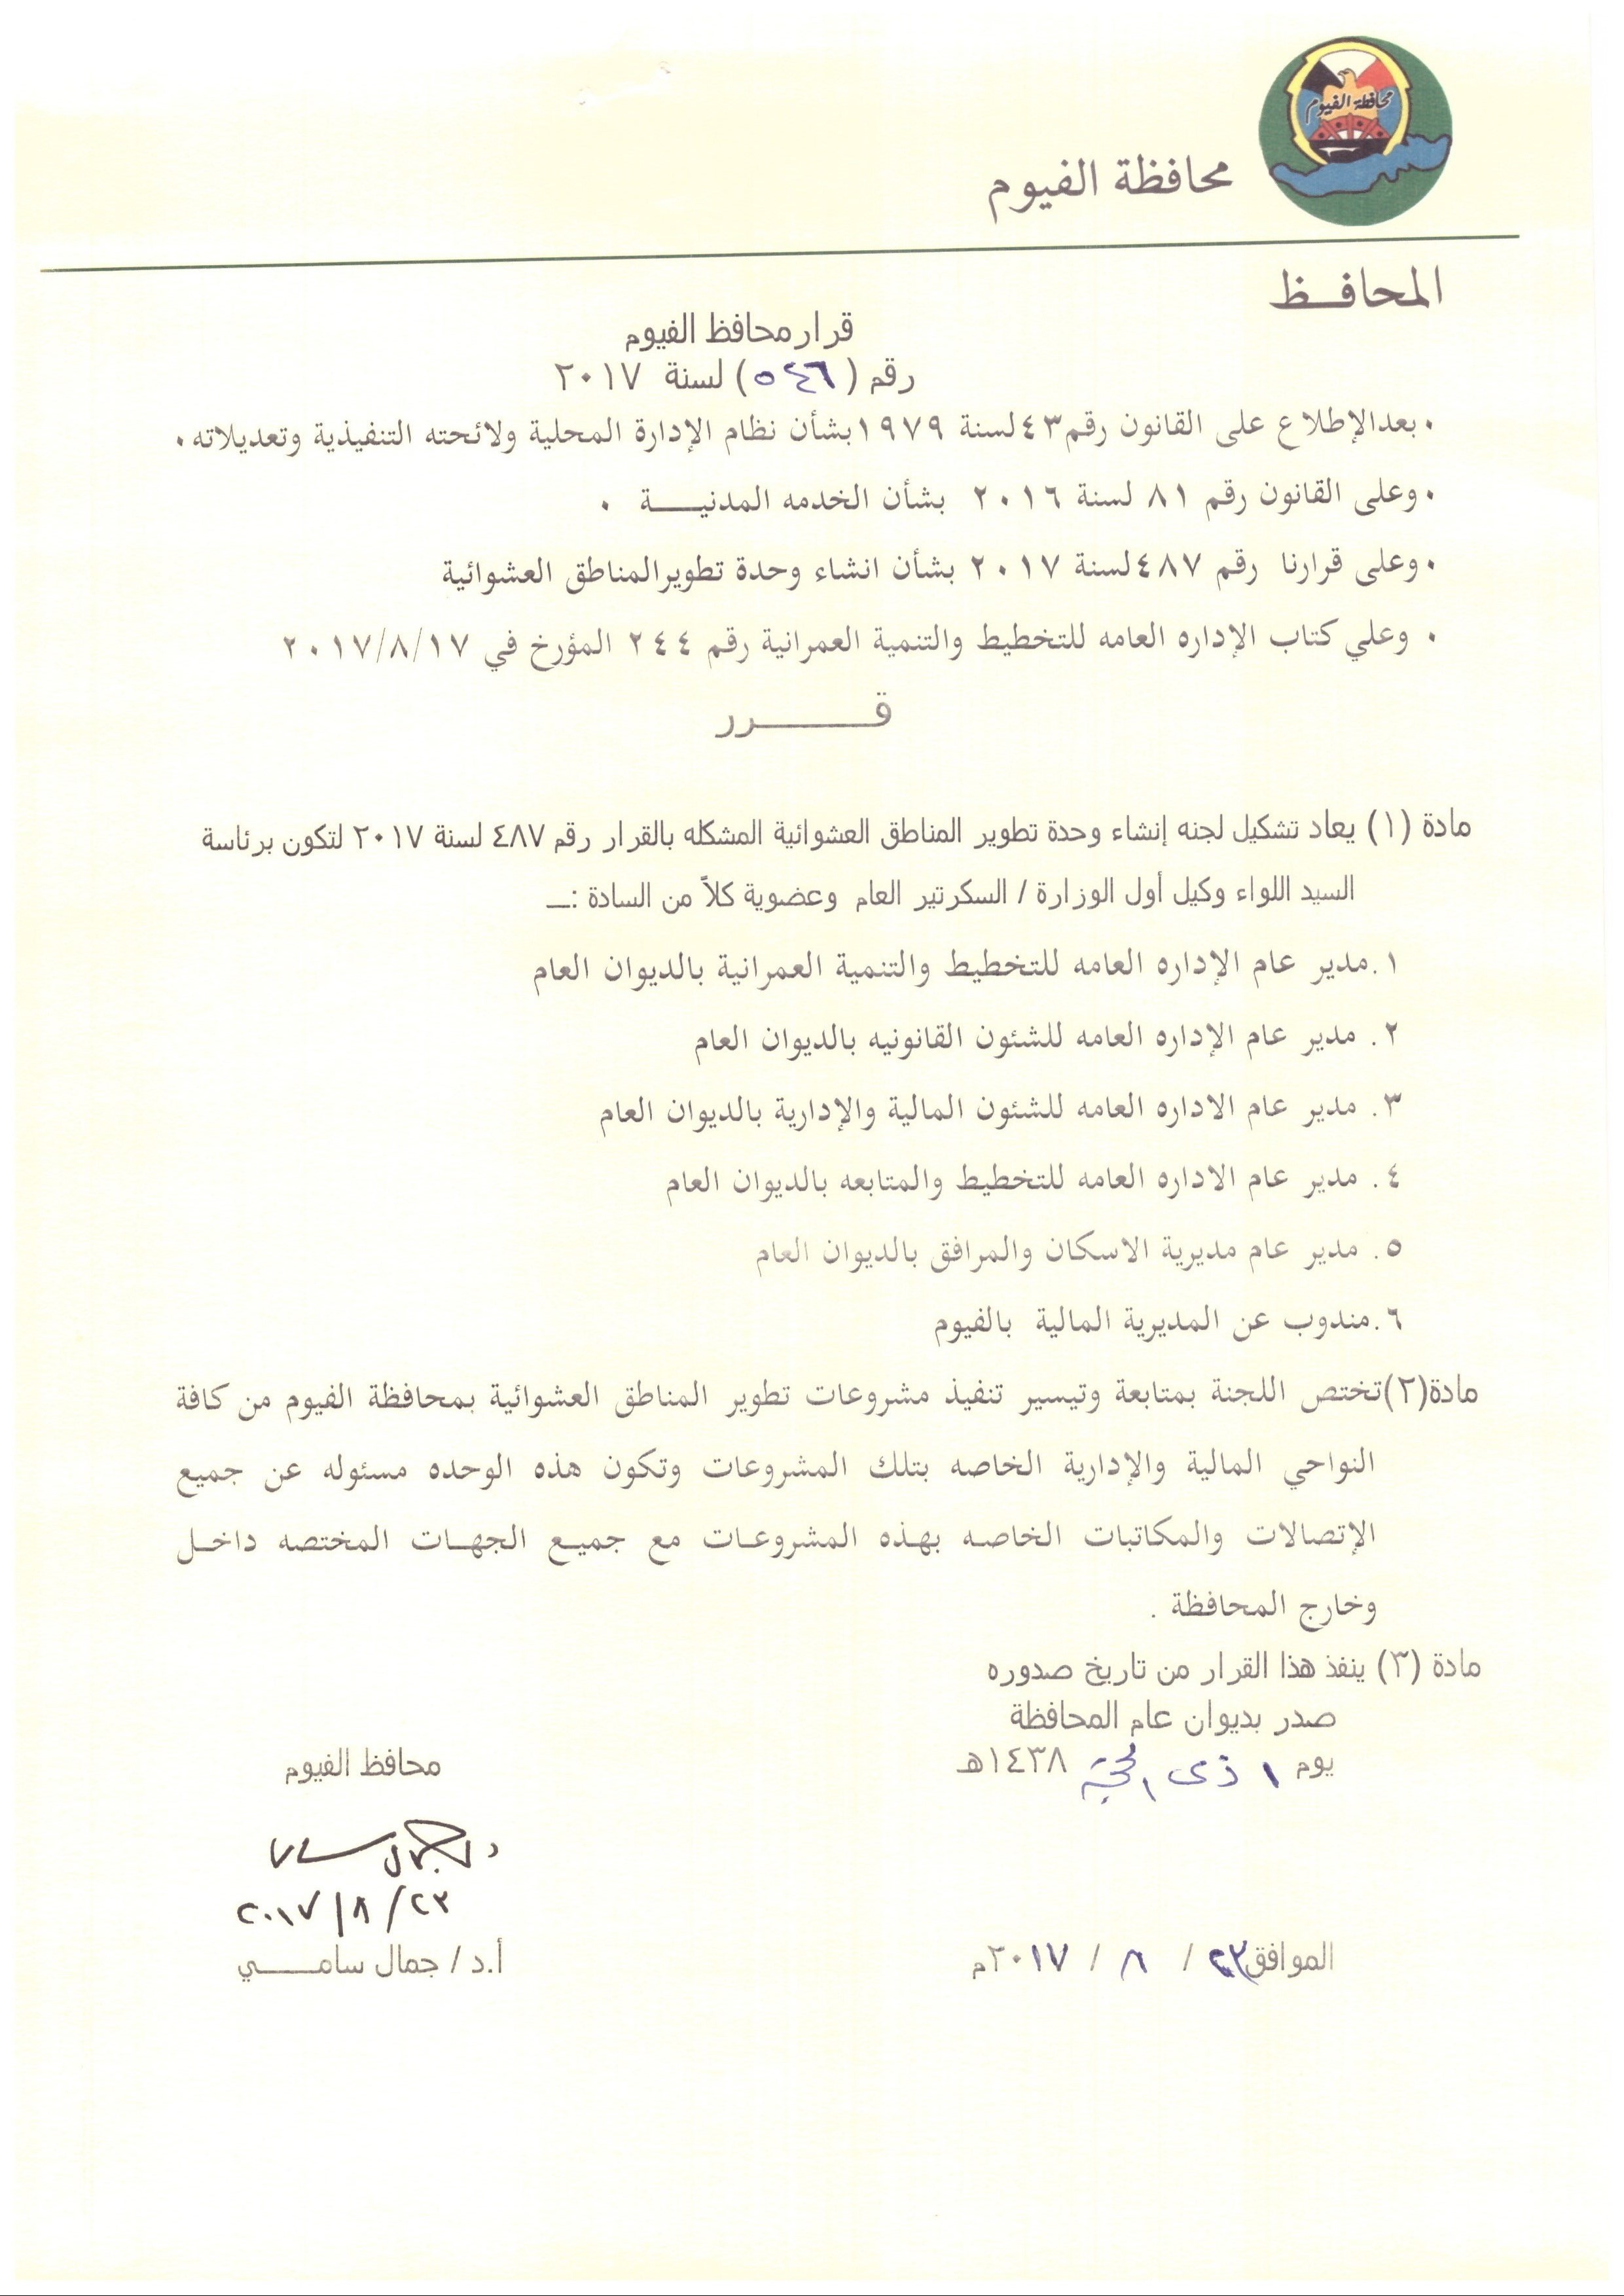 محافظة الفيوم
محافظة الفيوم
المحافــظ
قرار محافظ الفيوم
رقم ( ٥٤٦ ) لسنة ٢٠١٧
٠ بعدالإطلاع على القانون رقم٤٣لسنة ١٩٧٩بشأن نظام الإدارة المحلية ولائحته التنفيذية وتعديلاته ٠
٠ وعلى القانون رقم ٨١ لسنة ٢٠١٦ بشأن الخدمه المدنيـــــة ٠
٠ وعلى قرارنا رقم ٤٨٧لسنة ٢٠١٧ بشأن انشاء وحدة تطويرالمناطق العشوائية
٠ وعلي كتاب الإداره العامه للتخطيط والتنمية العمرانية رقم ٢٤٤ المؤرخ في ٢٠١٧/٨/١٧
قـــــــــرر
مادة (١) يعاد تشكيل لجنه إنشاء وحدة تطوير المناطق العشوائية المشكله بالقرار رقم ٤٨٧ لسنة ٢٠١٧ لتكون برئاسة
السيد اللواء وكيل أول الوزارة / السكرتير العام وعضوية كلاً من السادة :ــ
١.مدير عام الإداره العامه للتخطيط والتنمية العمرانية بالديوان العام
٢. مدير عام الإداره العامه للشئون القانونيه بالديوان العام
٣. مدير عام الاداره العامه للشئون المالية والإدارية بالديوان العام
٤. مدير عام الاداره العامه للتخطيط والمتابعه بالديوان العام
٥. مدير عام مديرية الاسكان والمرافق بالديوان العام
٦.مندوب عن المديرية المالية بالفيوم
مادة(٢)تختص اللجنة بمتابعة وتيسير تنفيذ مشروعات تطوير المناطق العشوائية بمحافظة الفيوم من كافة
النواحي المالية والإدارية الخاصه بتلك المشروعات وتكون هذه الوحده مسئوله عن جميع
الإتصالات والمكاتبات الخاصه بهذه المشروعات مع جميع الجهات المختصه داخل
وخارج المحافظة .
مادة (٣) ينفذ هذا القرار من تاريخ صدوره
صدر بديوان عام المحافظة
يوم ١ ذى الحجة ١٤٣٨هـ
محافظ الفيوم
٢٠١٧/٨/٢٣
أ.د / جمال سامـــــي
الموافق٢٣ / ٨ / ٢٠١٧م